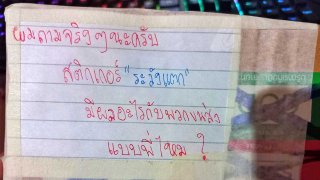 ผมถามจริงๆนะครับ
สติกเกอร์ "ระวังแตก"
มีผลอะไรกับพวกขนส่ง
แบบพี่ไหม ?